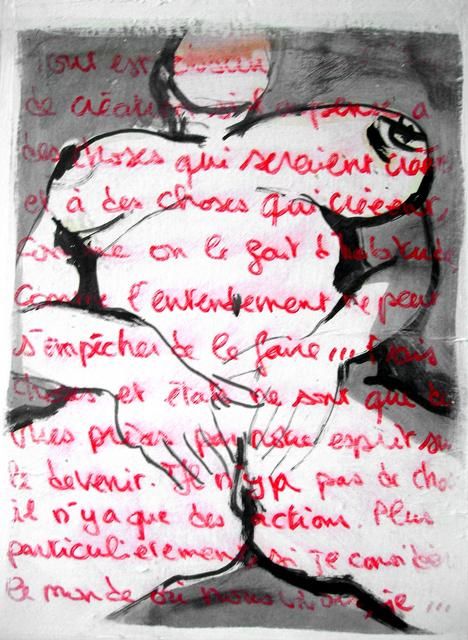 Tout est obscur
de création si pense à
des choses qui seraient créé
et à des choses qui créent,
comme on le fait d'habitude
Comme l'entendement ne peut
s'empêcher de le faire...
choses et états ne sont que
vues prises par notre esprit su
le devenir. Il n'y a pas de cho
il n'y a que des actions. Plus
particulièrement, si je considè
le monde où nous vivons, je ...